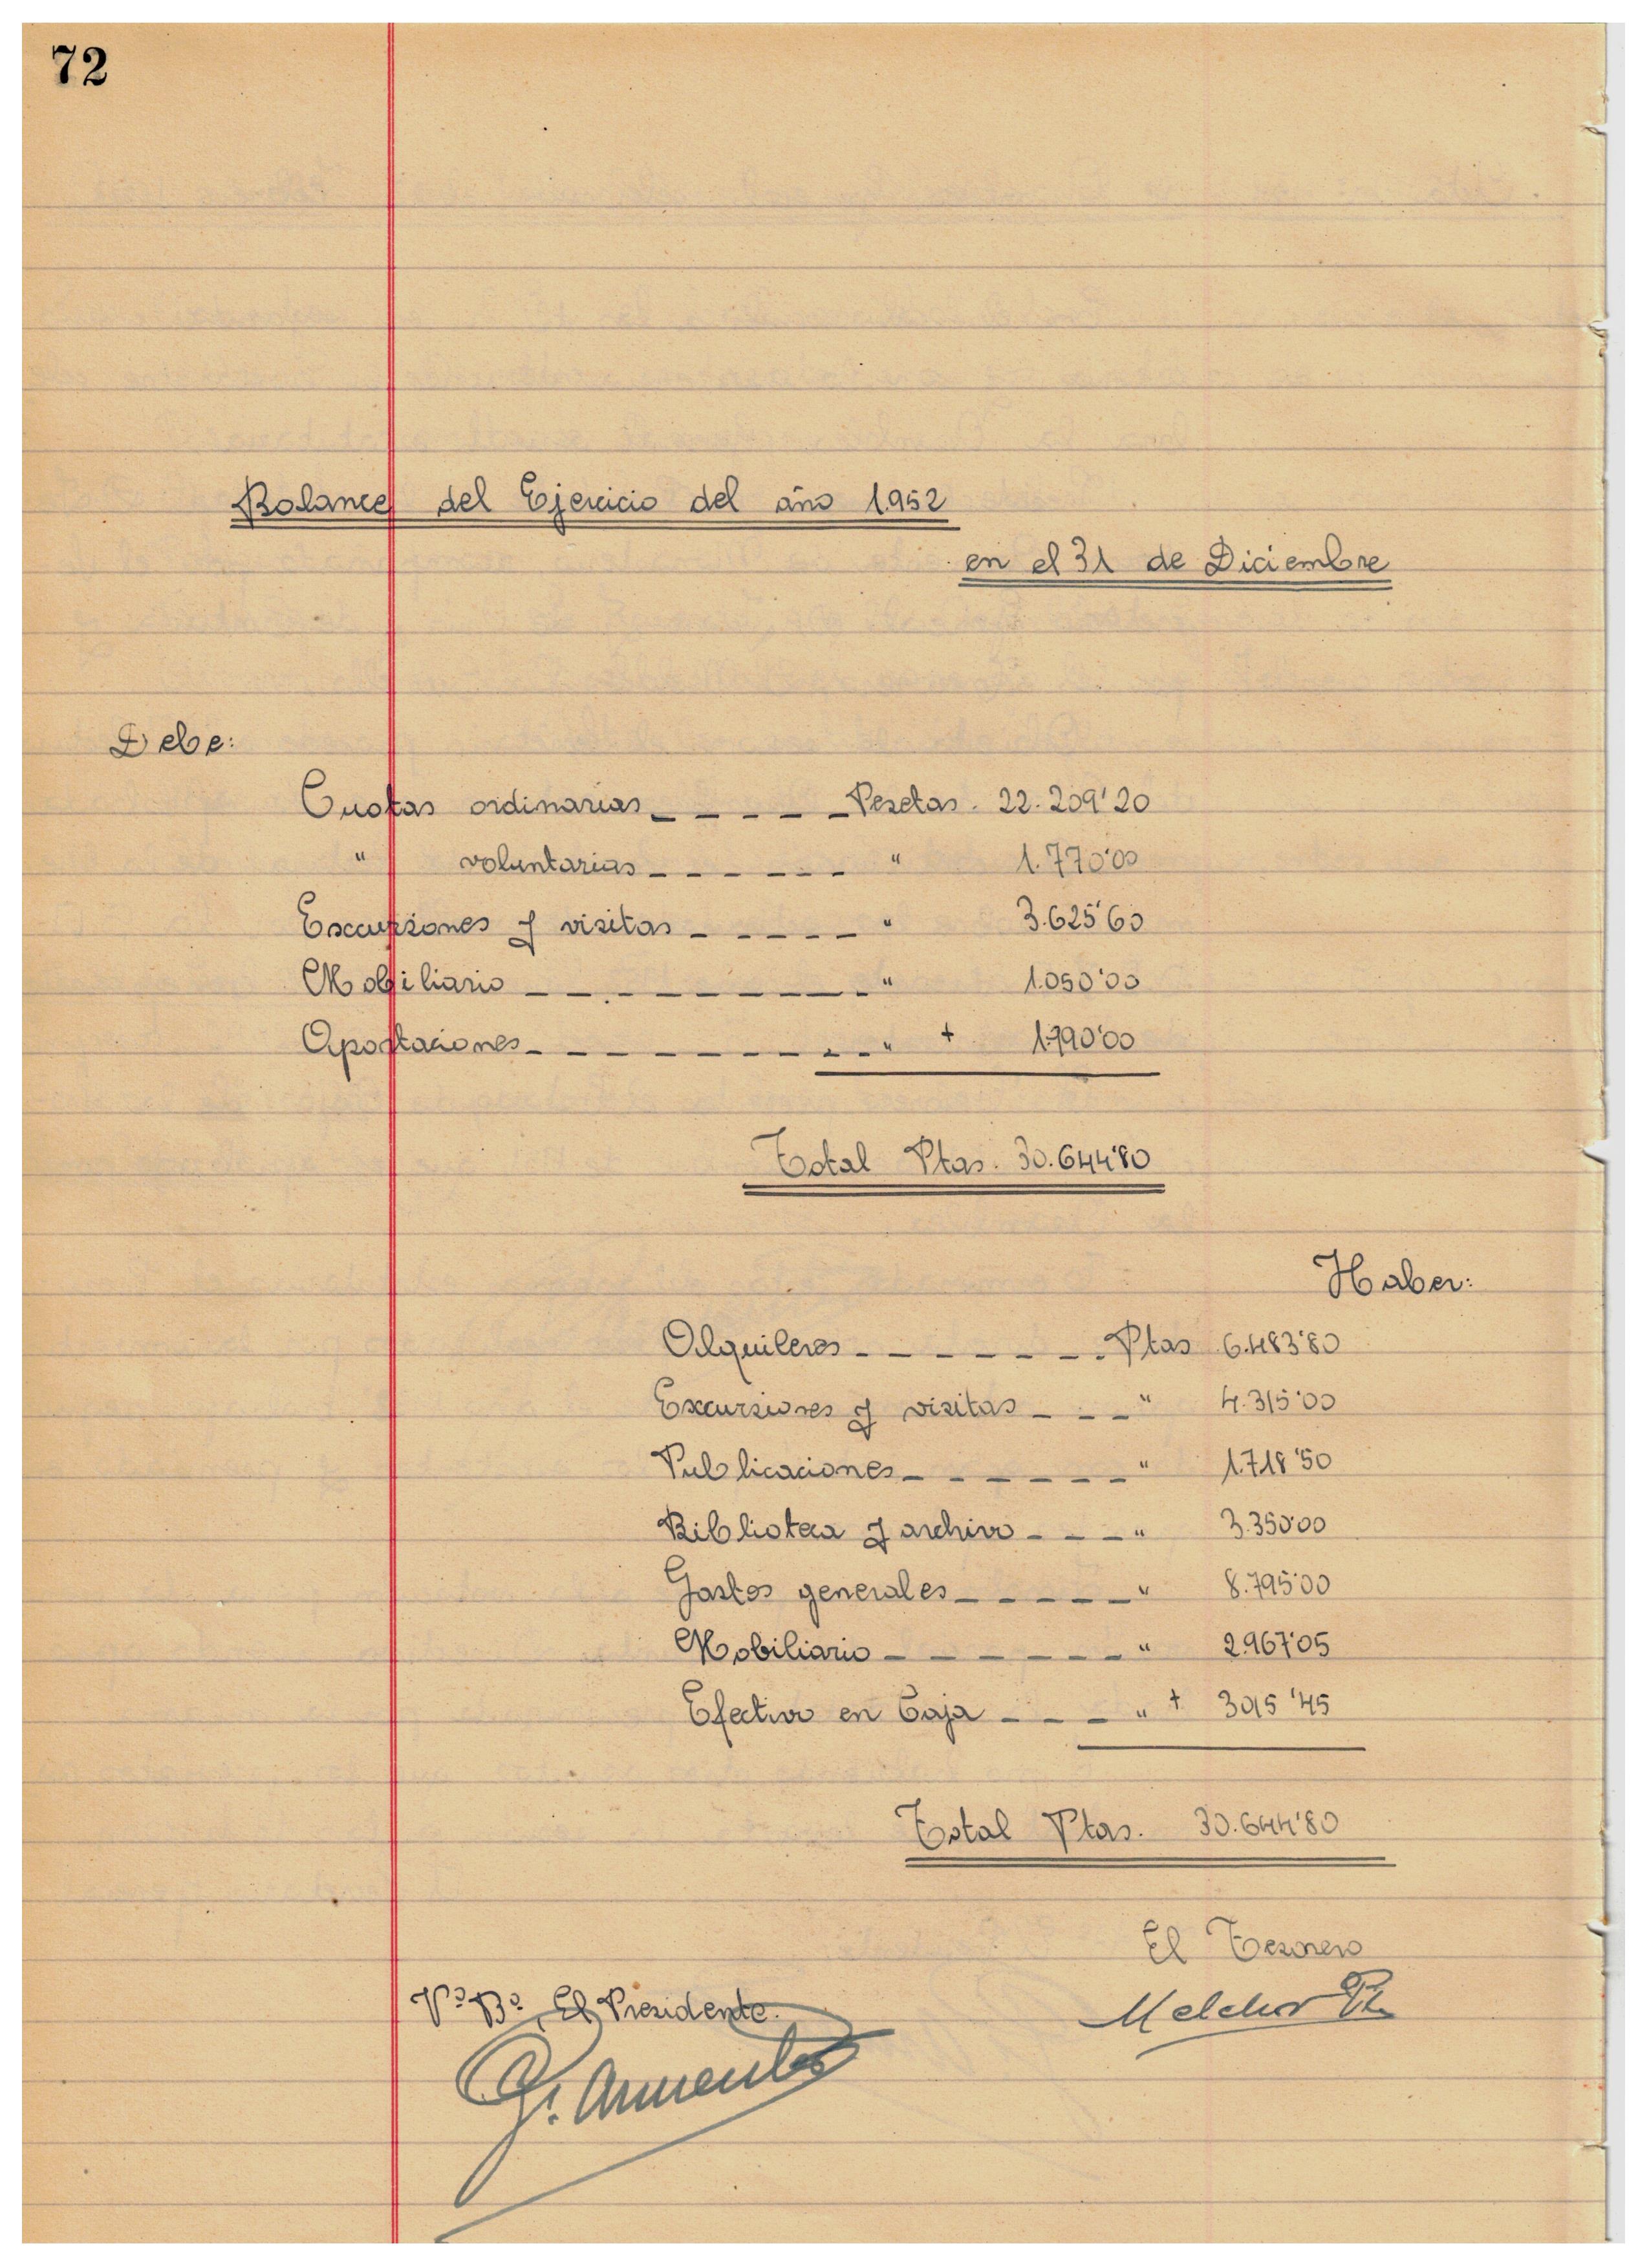 72
Balance del Ejercicio del año 1.952
en el 31 de Diciembre
Debe:
Cuotas ordinarias _ _ _ _ _ Pesetas. 22.209'20
" voluntarias _ _ _ _ _ _ " 1.770'00
Excursiones y visitas _ _ _ _ _ " 3.625'60
Mobiliario _ _ _ _ _ _ _ _ " 1.050'00
Aportaciones _ _ _ _ _ _ _ _ " + 1.990'00
Total Ptas. 30.644'80
Haber:
Alquileres _ _ _ _ _ _ Ptas 6.483'80
Excursiones y visitas _ _ _ " 4.315'00
Publicaciones _ _ _ _ _ _ " 1.718'50
Biblioteca y archivo _ _ _ " 3.350'00
Gastos generales _ _ _ _ _ " 8.795'00
Mobiliario _ _ _ _ _ _ " 2.967'05
Efectivo en Caja _ _ _ " + 3015'45
Total Ptas. 30.644'80
El Tesorero
Vº Bº, El Presidente.
Melchor
Armenter